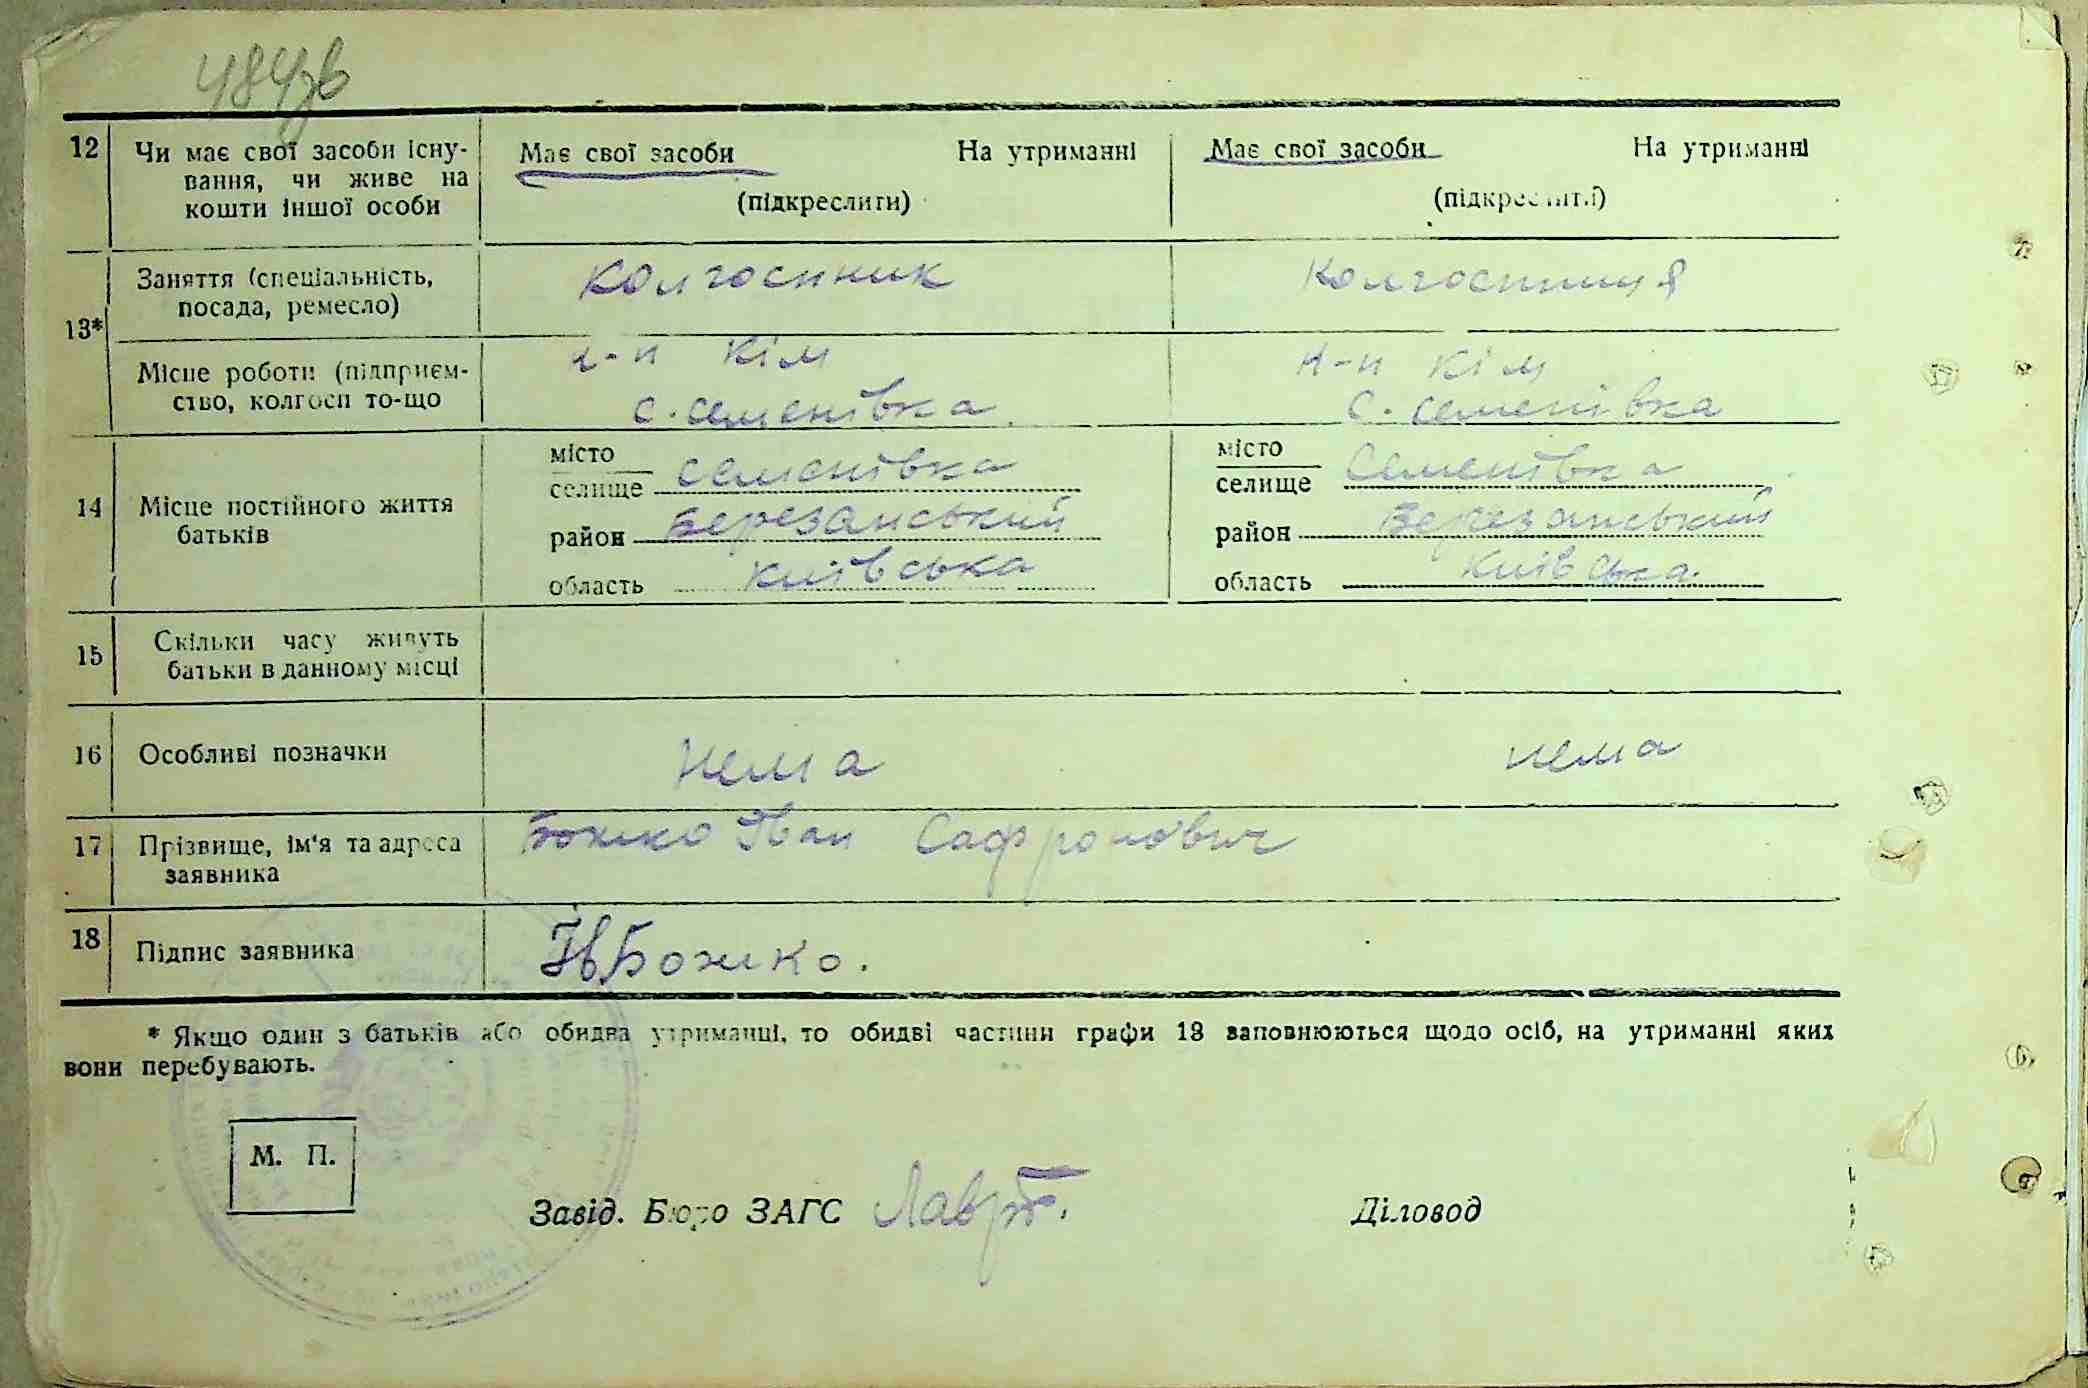 484зв
12 Чи має свої засоби існу- Має свої засоби На утриманні Має свої засоби На утриманні
вання, чи живе на
кошти іншої особи (підкреслити) (підкреслити)
13* Заняття (спеціальність, колгоспник колгоспниця
посада, ремесло)
Місце роботи (підприєм- к-п Кім к-п Кім
ство, колгосп то-що с. Семенівка с. Семенівка
14 Місце постійного життя батьків місто місто
селище Семенівка селище Семенівка
район Березанський район Березанський
область Київська область Київська
15 Скільки часу живуть
батьки в данному місці
16 Особливі позначки Нема нема
17 Прізвище, ім'я та адреса Божко Іван Сафронович
заявника
18 Підпис заявника Ів Божко.
* Якщо один з батьків або обидва утриманці, то обидві частини графи 13 заповнюються щодо осіб, на утриманні яких
вони перебувають.
М. П.
Завід. Бюро ЗАГС Діловод